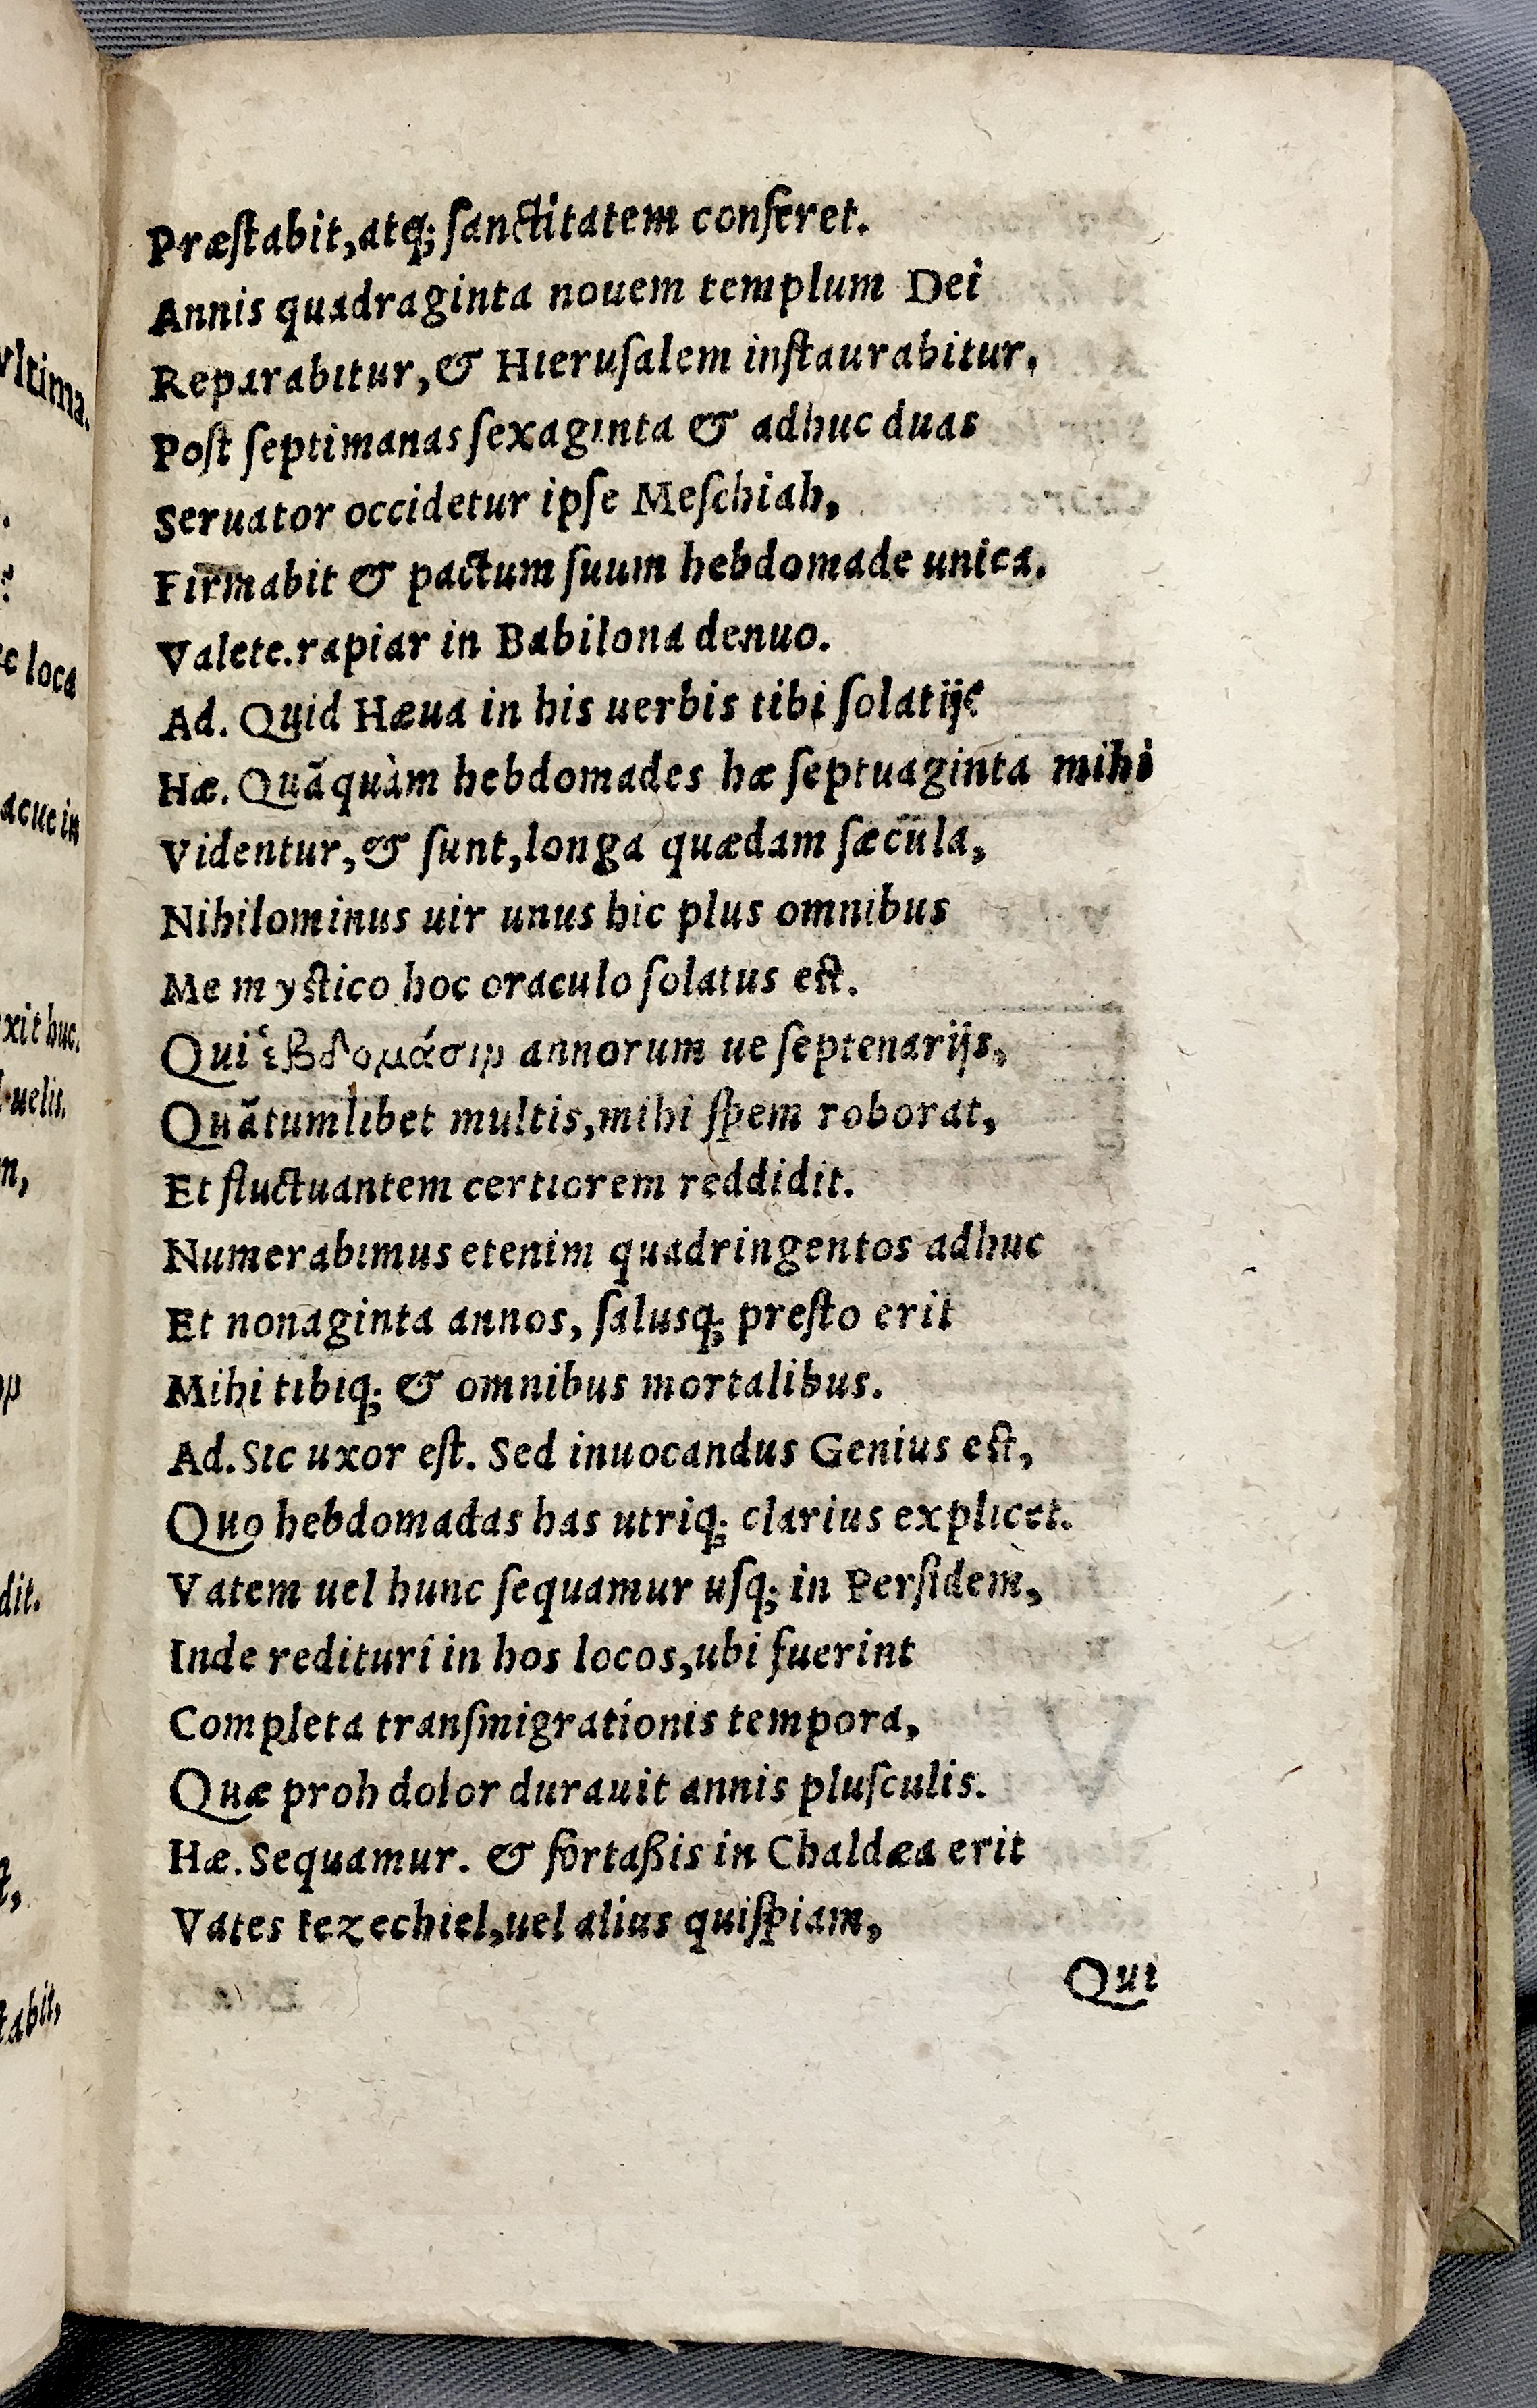 Præſtabit,atq; ſanctitatem conferet.
Annis quadraginta nouem templum Dei
Reparabitur,& Hieruſalem inſtaurabitur,
Poſt ſeptimanas ſexaginta & adhuc duas
Seruator occidetur ipſe Meſchiah,
Firmabit & pactum ſuum hebdomade unica.
Valete.rapiar in Babilona denuo.
Ad. Quid Hæua in his uerbis tibi ſolatij?
Hæ. Quãquàm hebdomades hæ ſeptuaginta mihi
Videntur,& ſunt,longa quædam ſæcula,
Nihilominus uir unus hic plus omnibus
Me myſtico hoc oraculo ſolatus eſt.
Qui ἑβδομάσιν annorum ue ſeptenarijs,
Quãtumlibet multis,mihi ſpem roborat,
Et fluctuantem certiorem reddidit.
Numerabimus etenim quadringentos adhuc
Et nonaginta annos, ſalusq; preſto erit
Mihi tibiq; & omnibus mortalibus.
Ad. Sic uxor eſt. Sed inuocandus Genius eſt,
Quo hebdomadas has utriq; clarius explicet.
Vatem uel hunc ſequamur uſq; in Perſidem,
Inde redituri in hos locos,ubi fuerint
Completa tranſmigrationis tempora,
Quæ proh dolor durauit annis pluſculis.
Hæ. Sequamur. & fortaßis in Chaldæa erit
Vates Iezechiel,uel alius quiſpiam,
Qui
vltima.
loca
in
xit huc.
uelis.
dit.
tabit,